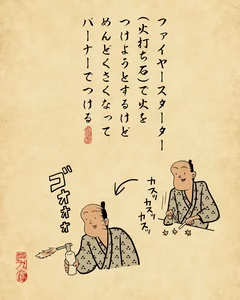 ファイヤースターター
(火打ち石)で火を
つけようとするけど
めんどくさくなって
バーナーでつける
カスッ カスッ カスッ
ゴォォォォ